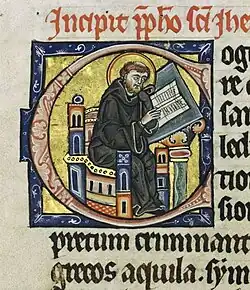 Incipit ꝓho sc̃i Jhe
ogu
re c
san
led
tico
sion
pretum criminant
grecos aquila. sým